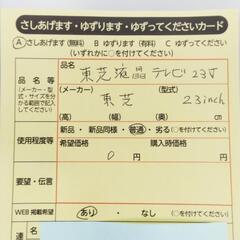 さしあげます・ゆずります・ゆずってくださいカード
Ⓐ さしあげます（無料） B ゆずります（有料） C ゆずってください
（いずれかに○を付けてください）
品名等
（メーカー・型式・サイズを分かる範囲で記入してください）
東芝液晶テレビ23寸
（メーカー）（型式）
東芝 23inch
（幅）（高）（奥）cm
使用程度等
新品・新品同様・普通・劣る（○を付けてください）
希望価格 購入時価格
0 円 円
要望・伝言
WEB掲載希望 あり・なし（○を付けてください）
連